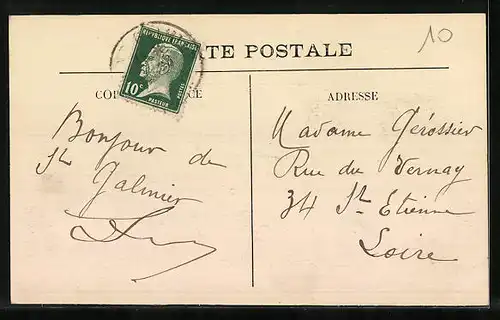 10
TE POSTALE
REPUBLIQUE FRANÇAISE
POSTES
10c
PASTEUR
CO CE
ADRESSE
Bonjour de
St Galmier
Madame
Rue du Vernay
34 St Etienne
Loire